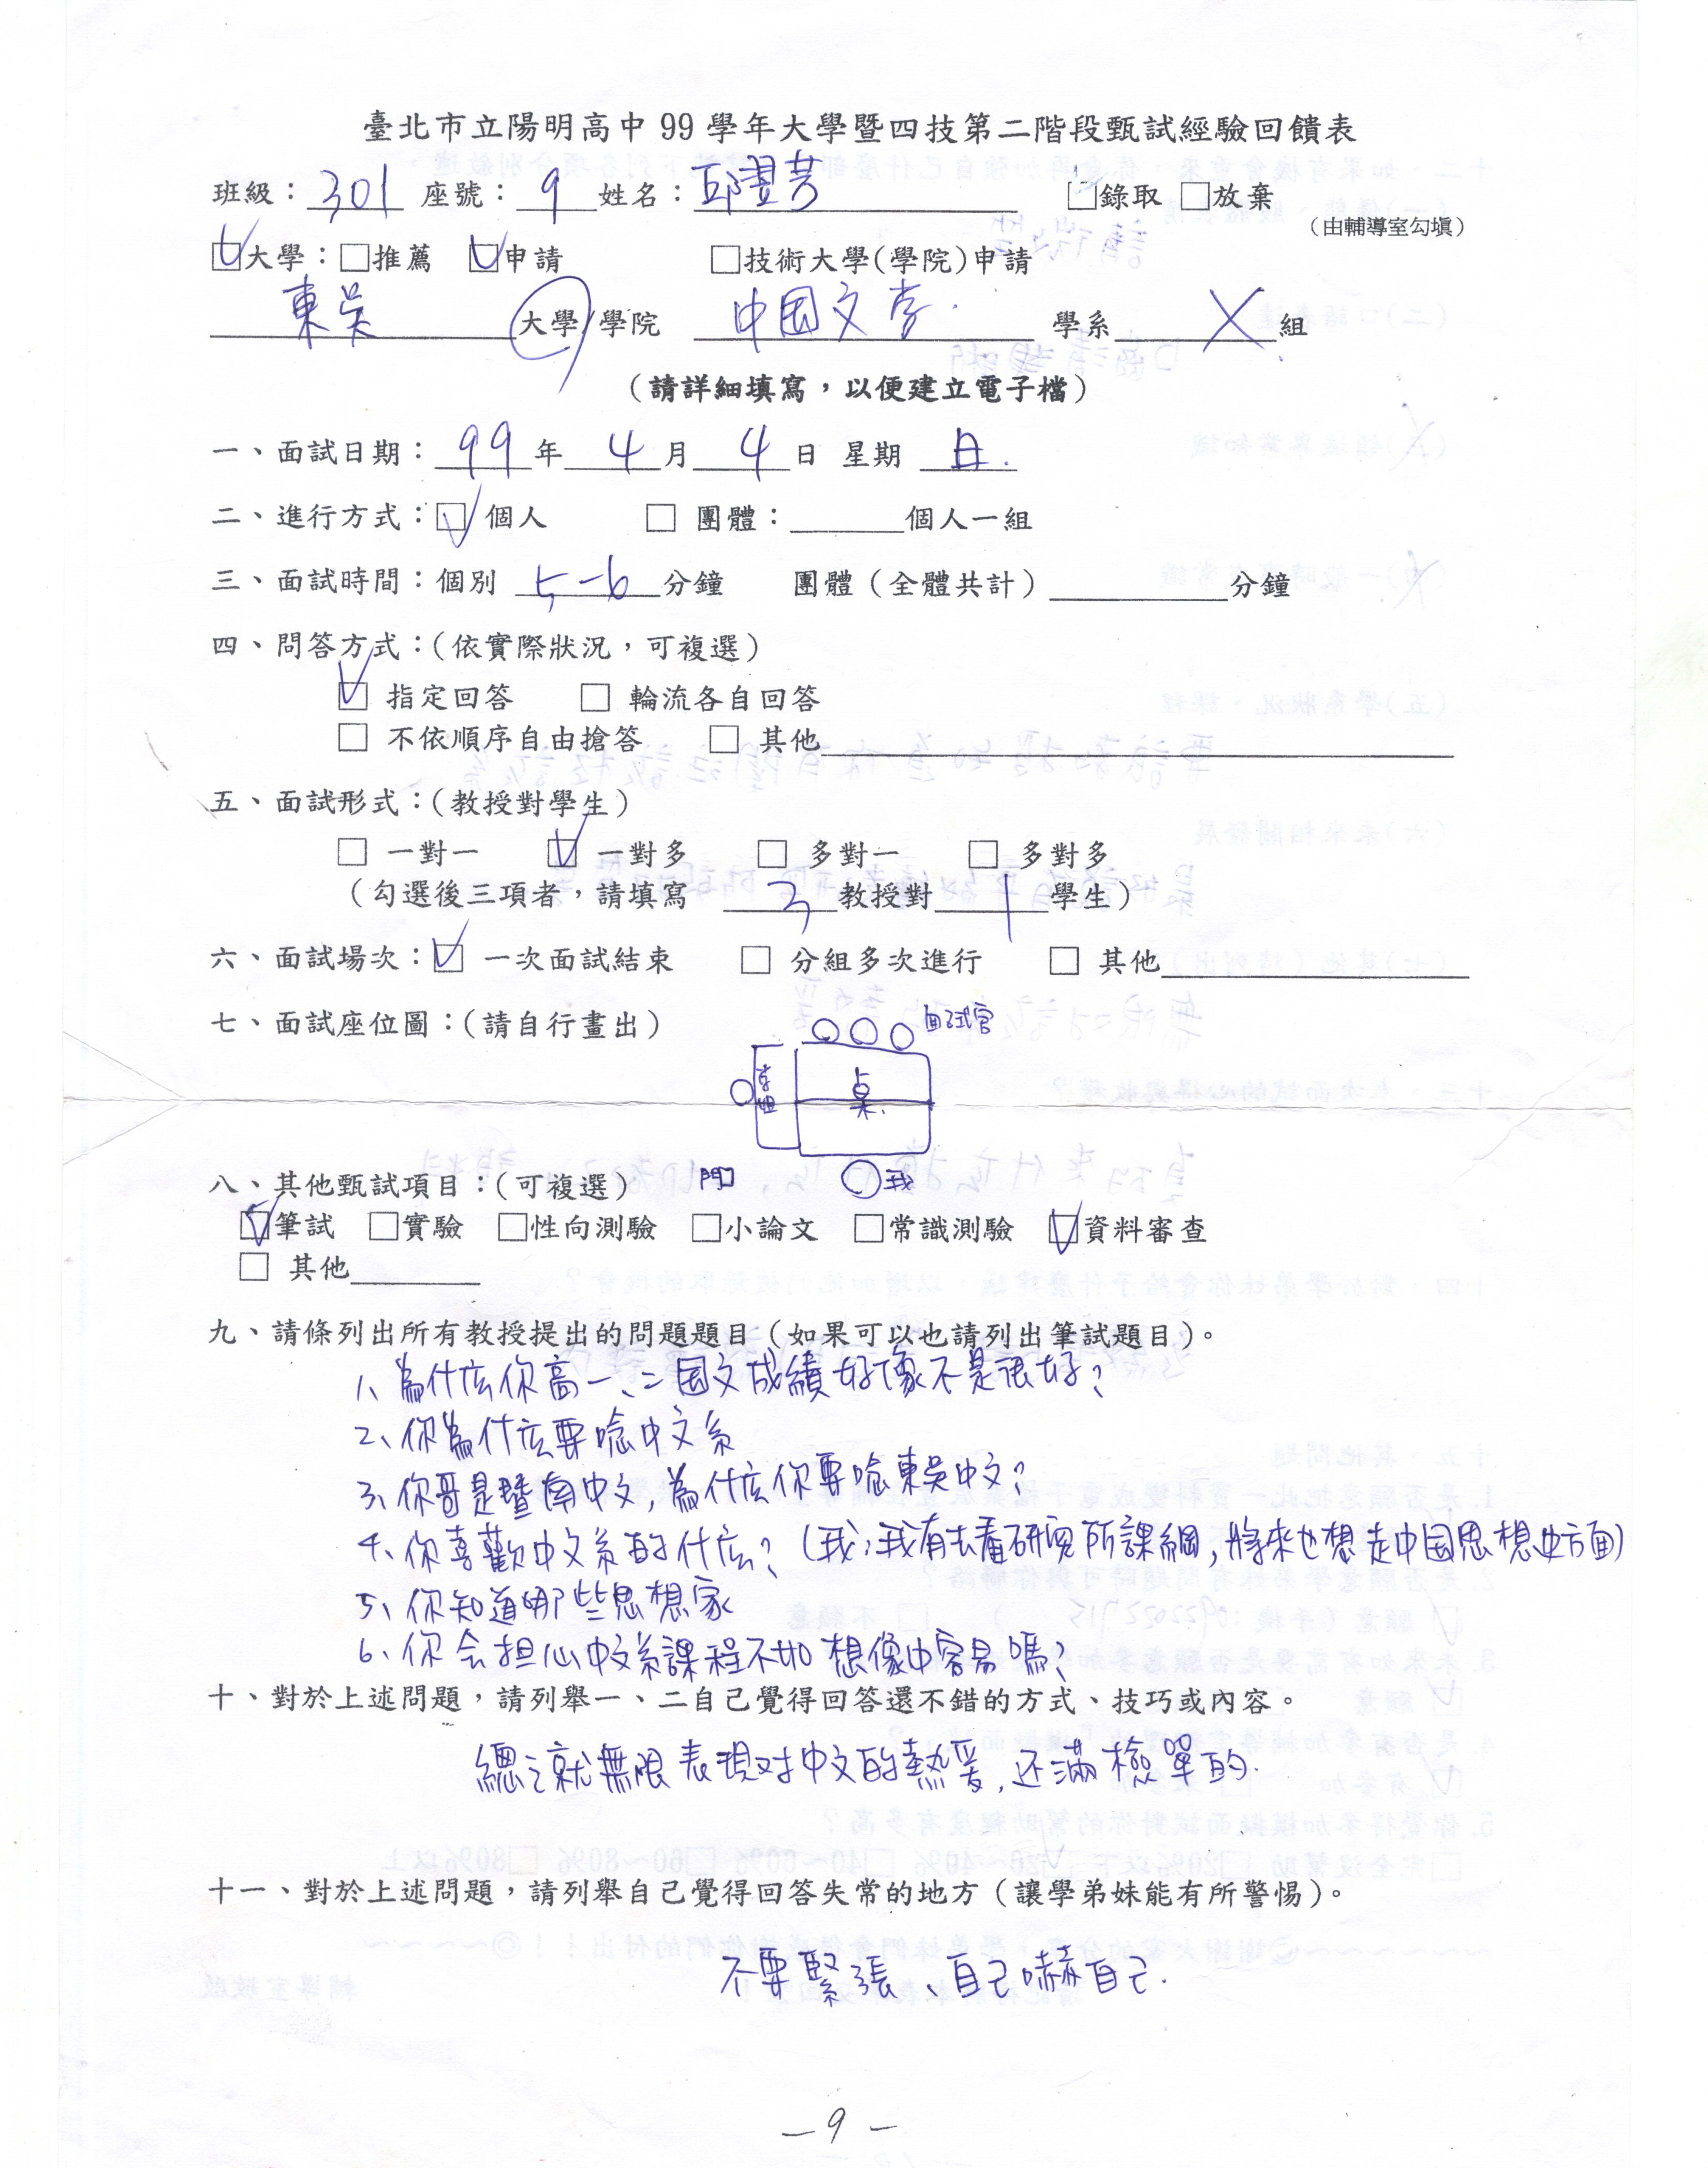 臺北市立陽明高中 99 學年大學暨四技第二階段甄試經驗回饋表
班級：301 座號：9 姓名：邱翌芳 □錄取 □放棄
（由輔導室勾填）
☑大學：□推薦 ☑申請 □技術大學(學院)申請
東吳 大學/學院 中國文學 學系 X 組
（請詳細填寫，以便建立電子檔）
一、面試日期：99年4月4日 星期 日.
二、進行方式：☑ 個人 □ 團體：______個人一組
三、面試時間：個別 5-6 分鐘 團體（全體共計）______分鐘
四、問答方式：(依實際狀況，可複選)
☑ 指定回答 □ 輪流各自回答
□ 不依順序自由搶答 □ 其他______
五、面試形式：(教授對學生)
□ 一對一 ☑ 一對多 □ 多對一 □ 多對多
（勾選後三項者，請填寫 3 教授對 1 學生）
六、面試場次：☑ 一次面試結束 □ 分組多次進行 □ 其他______
七、面試座位圖：(請自行畫出)
面試官
桌
門口 我
八、其他甄試項目：(可複選)
☑筆試 □實驗 □性向測驗 □小論文 □常識測驗 ☑資料審查
□ 其他______
九、請條列出所有教授提出的問題題目（如果可以也請列出筆試題目）。
1、為什庅你高一、二国文成績好像不是很好？
2、你為什庅要唸中文系
3、你哥是暨南中文，為什庅你要唸東吳中文？
4、你喜歡中文系的什庅？（我：我有去看研究所課綱，將來也想走中国思想史方面）
5、你知道哪些思想家
6、你会担心中文系課程不如想像中容易嗎？
十、對於上述問題，請列舉一、二自己覺得回答還不錯的方式、技巧或內容。
總之就無限表現对中文的熱愛，还滿檢單的.
十一、對於上述問題，請列舉自己覺得回答失常的地方（讓學弟妹能有所警惕）。
不要緊張、自己嚇自己.
— 9 —